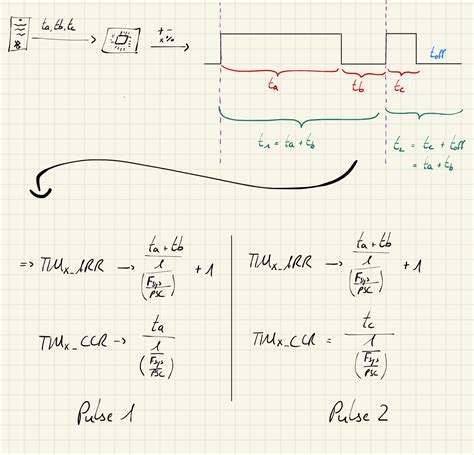 ta, tb, tc
+ -
x %
toff
ta
tb
tc
t1 = ta + tb
t2 = tc + toff
= ta + tb
=> TIMx_ARR → (ta + tb) / (1 / (Fsys / PSC)) + 1
TIMx_ARR → (ta + tb) / (1 / (Fsys / PSC)) + 1
TIMx_CCR → ta / (1 / (Fsys / PSC))
TIMx_CCR = tc / (1 / (Fsys / PSC))
Pulse 1
Pulse 2